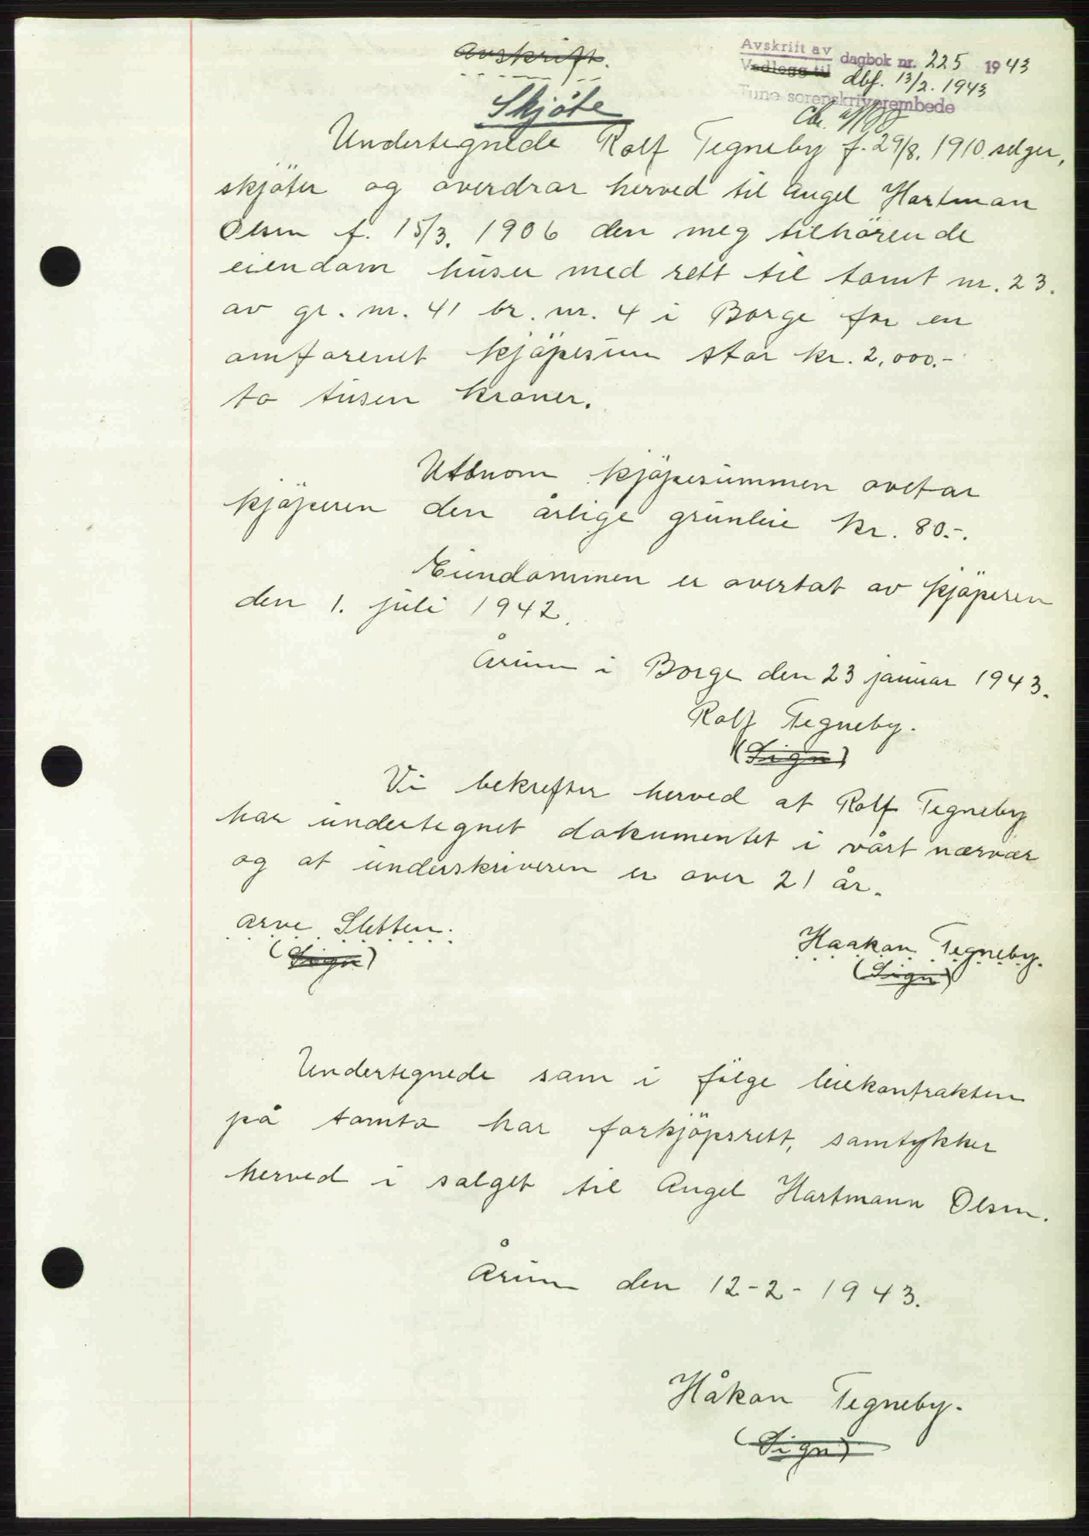 Avskrift.
Avskrift av
Vedlegg til
dagbok nr. 225 1943
dbf. 13/2. 1943
Tune sorenskriverembede
Skjöte
Undertegnede Rolf Tegneby f. 29/8. 1910 selger,
skjöter og overdrar herved til Angel Hartman
Olsen f. 15/3. 1906 den meg tilhörende
eiendom huset med rett til tomt nr. 23.
av gr. nr. 41 br. nr. 4 i Borge for en
omforenet kjöpesum stor kr. 2,000.-
to tusen kroner.
Utenom kjöpesummen overtar
kjöperen den årlige grunleie kr. 80.-.
Eiendommen er overtat av kjöperen
den 1. juli 1942.
Årum i Borge den 23 januar 1943.
Rolf Tegneby.
(Sign)
Vi bekrefter herved at Rolf Tegneby
har undertegnet dokumentet i vårt nærvær
og at underskriveren er over 21 år.
Arve Sletten.
(Sign)
Haakon Tegneby.
(Sign)
Undertegnede som i fölge leiekontrakten
på tomta har forkjöpsrett, samtykker
herved i salget til Angel Hartmann Olsen.
Årum den 12-2-1943.
Håkon Tegneby.
(Sign)